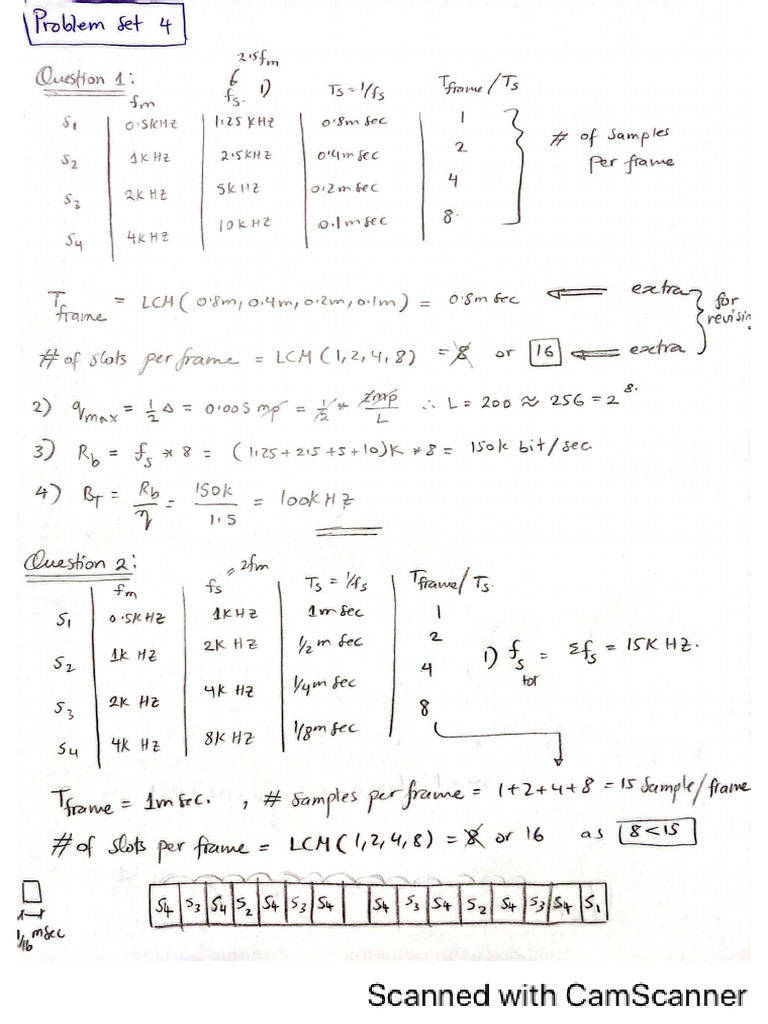 Problem Set 4
Question 1:
2.5fm
fm fs. 1) Ts = 1/fs Tframe / Ts
S1 0.5KHZ 1.25 KHZ 0.8m sec 1
S2 1K HZ 2.5KHZ 0.4m sec 2
S3 2K HZ 5K HZ 0.2m sec 4
S4 4K HZ 10K HZ 0.1m sec 8.
# of samples
Per frame
Tframe = LCM( 0.8m, 0.4m, 0.2m, 0.1m) = 0.8m sec ⇐ extra
for
revisin
# of slots per frame = LCM (1,2,4,8) = 8 or 16 ⇐ extra
2) qmax = 1/2 Δ = 0.005 mp = 1/2 * 2mp/L ∴ L = 200 ≈ 256 = 2^8.
3) Rb = fs * 8 = (1.25+2.5+5+10)K *8 = 150k bit/sec
4) BT = Rb/η = 150k/1.5 = 100K HZ
Question 2:
fm fs = 2fm Ts = 1/fs Tframe/ Ts.
S1 0.5K HZ 1K HZ 1m sec 1
S2 1K HZ 2K HZ 1/2 m sec 2
S3 2K HZ 4K HZ 1/4m sec 4
S4 4K HZ 8K HZ 1/8m sec 8
1) fs tot = Σfs = 15K HZ.
Tframe = 1m sec. , # samples per frame = 1+2+4+8 = 15 Sample/frame
# of slots per frame = LCM (1,2,4,8) = 8 or 16 as 8<15
S4 S3 S4 S2 S4 S3 S4 S4 S3 S4 S2 S4 S3 S4 S1
1/16 msec
Scanned with CamScanner